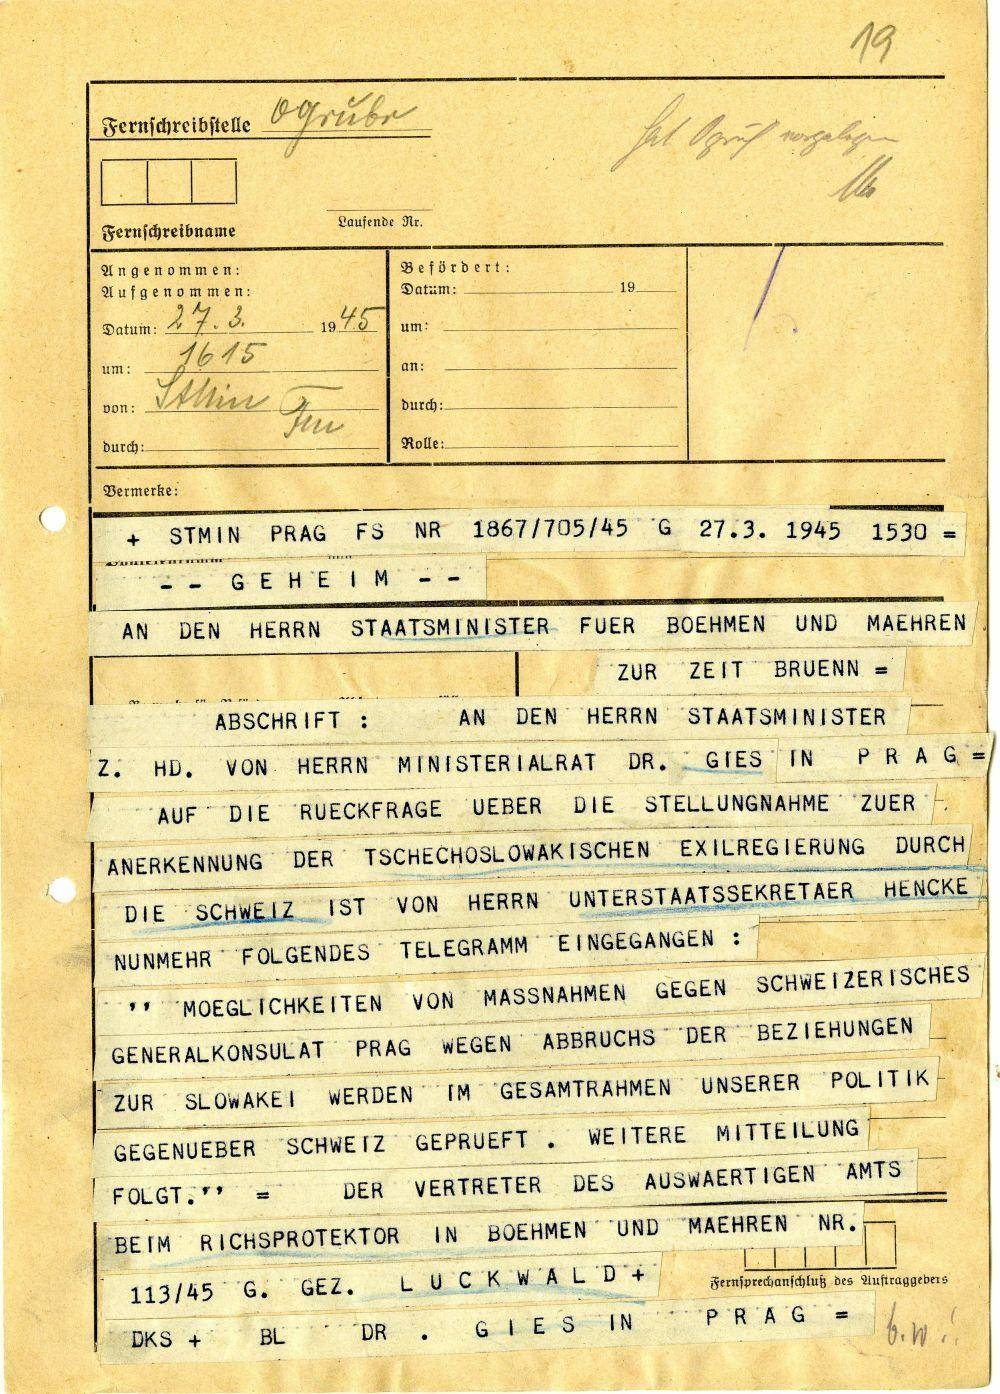 19
Fernschreibstelle OGrube
Hat Ogruf vorgelegen
Fernschreibname
Laufende Nr.
Angenommen:
Aufgenommen:
Datum: 27.3. 1945
um: 1615
von: StMin
durch:
Befördert:
Datum: 19
um:
an:
durch:
Rolle:
Vermerke:
+ STMIN PRAG FS NR 1867/705/45 G 27.3. 1945 1530 =
-- G E H E I M --
AN DEN HERRN STAATSMINISTER FUER BOEHMEN UND MAEHREN
ZUR ZEIT BRUENN =
ABSCHRIFT : AN DEN HERRN STAATSMINISTER
Z. HD. VON HERRN MINISTERIALRAT DR. GIES IN P R A G =
AUF DIE RUECKFRAGE UEBER DIE STELLUNGNAHME ZUER
ANERKENNUNG DER TSCHECHOSLOWAKISCHEN EXILREGIERUNG DURCH
DIE SCHWEIZ IST VON HERRN UNTERSTAATSSEKRETAER HENCKE
NUNMEHR FOLGENDES TELEGRAMM EINGEGANGEN :
,, MOEGLICHKEITEN VON MASSNAHMEN GEGEN SCHWEIZERISCHES
GENERALKONSULAT PRAG WEGEN ABBRUCHS DER BEZIEHUNGEN
ZUR SLOWAKEI WERDEN IM GESAMTRAHMEN UNSERER POLITIK
GEGENUEBER SCHWEIZ GEPRUEFT . WEITERE MITTEILUNG
FOLGT.,, = DER VERTRETER DES AUSWAERTIGEN AMTS
BEIM RICHSPROTEKTOR IN BOEHMEN UND MAEHREN NR.
113/45 G. GEZ. L U C K W A L D +
Fernsprechanschluß des Auftraggebers
DKS + BL DR . G I E S IN P R A G =
b.w.!